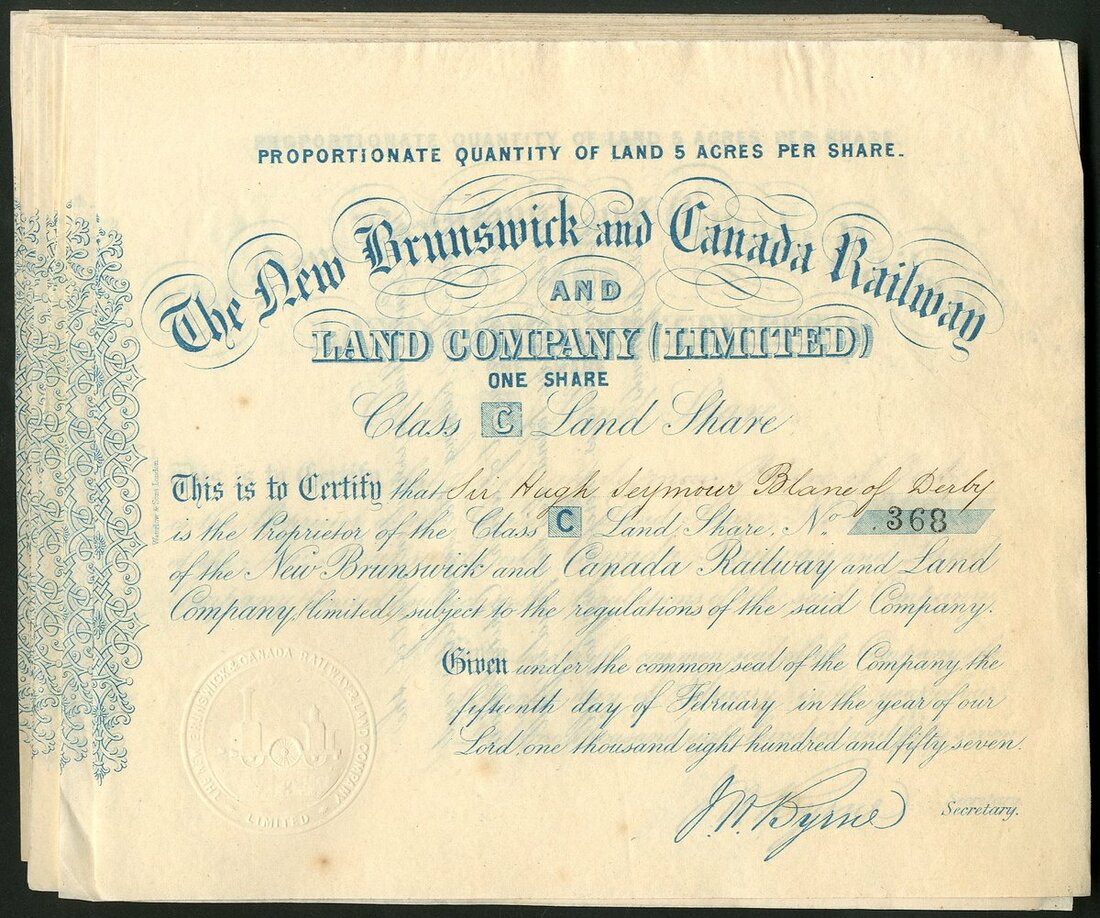 PROPORTIONATE QUANTITY OF LAND 5 ACRES PER SHARE.
The New Brunswick and Canada Railway
AND
LAND COMPANY (LIMITED)
ONE SHARE
Class C Land Share
This is to Certify that Sir Hugh Seymour Blane of Derby
is the Proprietor of the Class C Land Share, No. 368
of the New Brunswick and Canada Railway and Land
Company, limited, subject to the regulations of the said Company.
Given under the common seal of the Company, the
fifteenth day of February in the year of our
Lord, one thousand eight hundred and fifty seven.
J. W. Byrne Secretary.
THE NEW BRUNSWICK & CANADA RAILWAY & LAND COMPANY
LIMITED